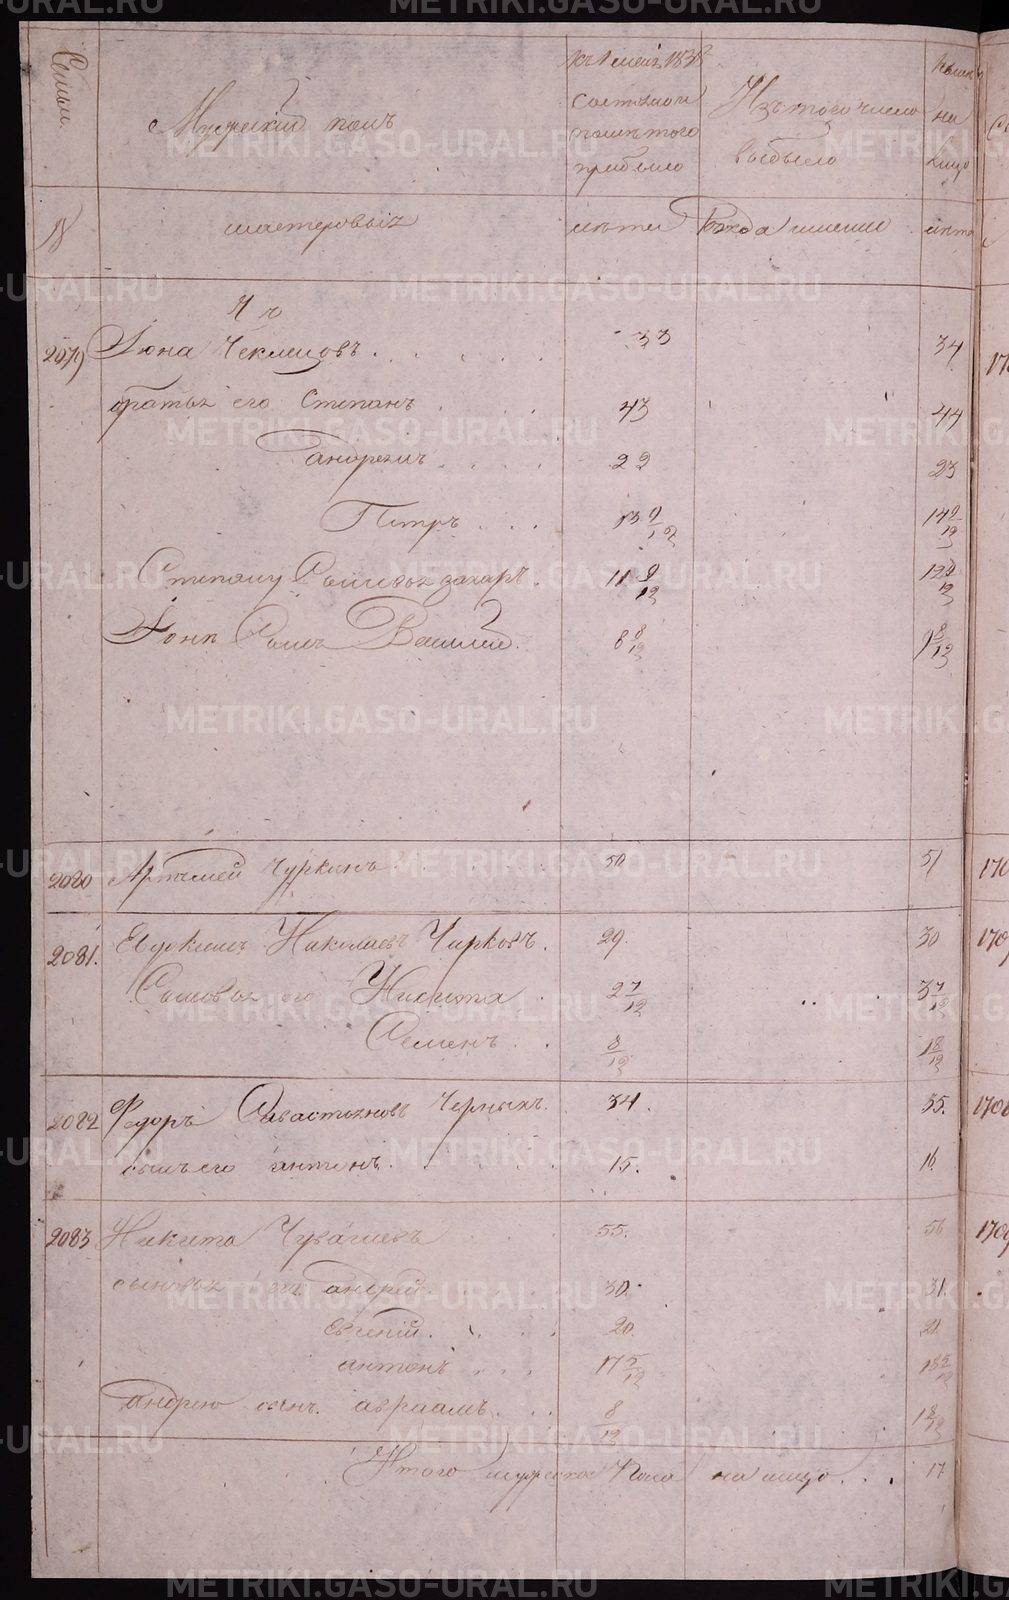 Семьи.
Мужескій полъ
къ 1 маія 1838
Состояло и
послѣ того
прибыло
Изъ того число
выбыло
на
лицо
N
мастеровыхъ
лѣта
Когда именно
лѣта
Ч ъ
2079 Іона Чеклецовъ 33 34
братья его Степанъ 43 44
Андреянъ 22 23
Петръ 13 9/12 14 9/12
Степану Сыновья Захаръ 11 9/12 12 9/12
Іоны Сынъ Василій 8 8/12 9 8/12
2080 Артемей Чуркинъ 50 51
2081. Евдокимъ Николаевъ Чирковъ. 29. 30
Сыновья его Никита 2 7/12 3 7/12
Семенъ 8/12 1 8/12
2082 Федоръ Савастьяновъ Черныхъ. 34. 35.
сынъ его антонъ 15. 16.
2083 Никита Чувашевъ 55. 56
сыновья его андрей 30. 31.
Евгеній. 20. 21.
антонъ 17 5/12 18 5/12
андрею сынъ авраамъ 8/12 1 8/12
Итого мужеска Пола на лицо 17
METRIKI.GASO-URAL.RU